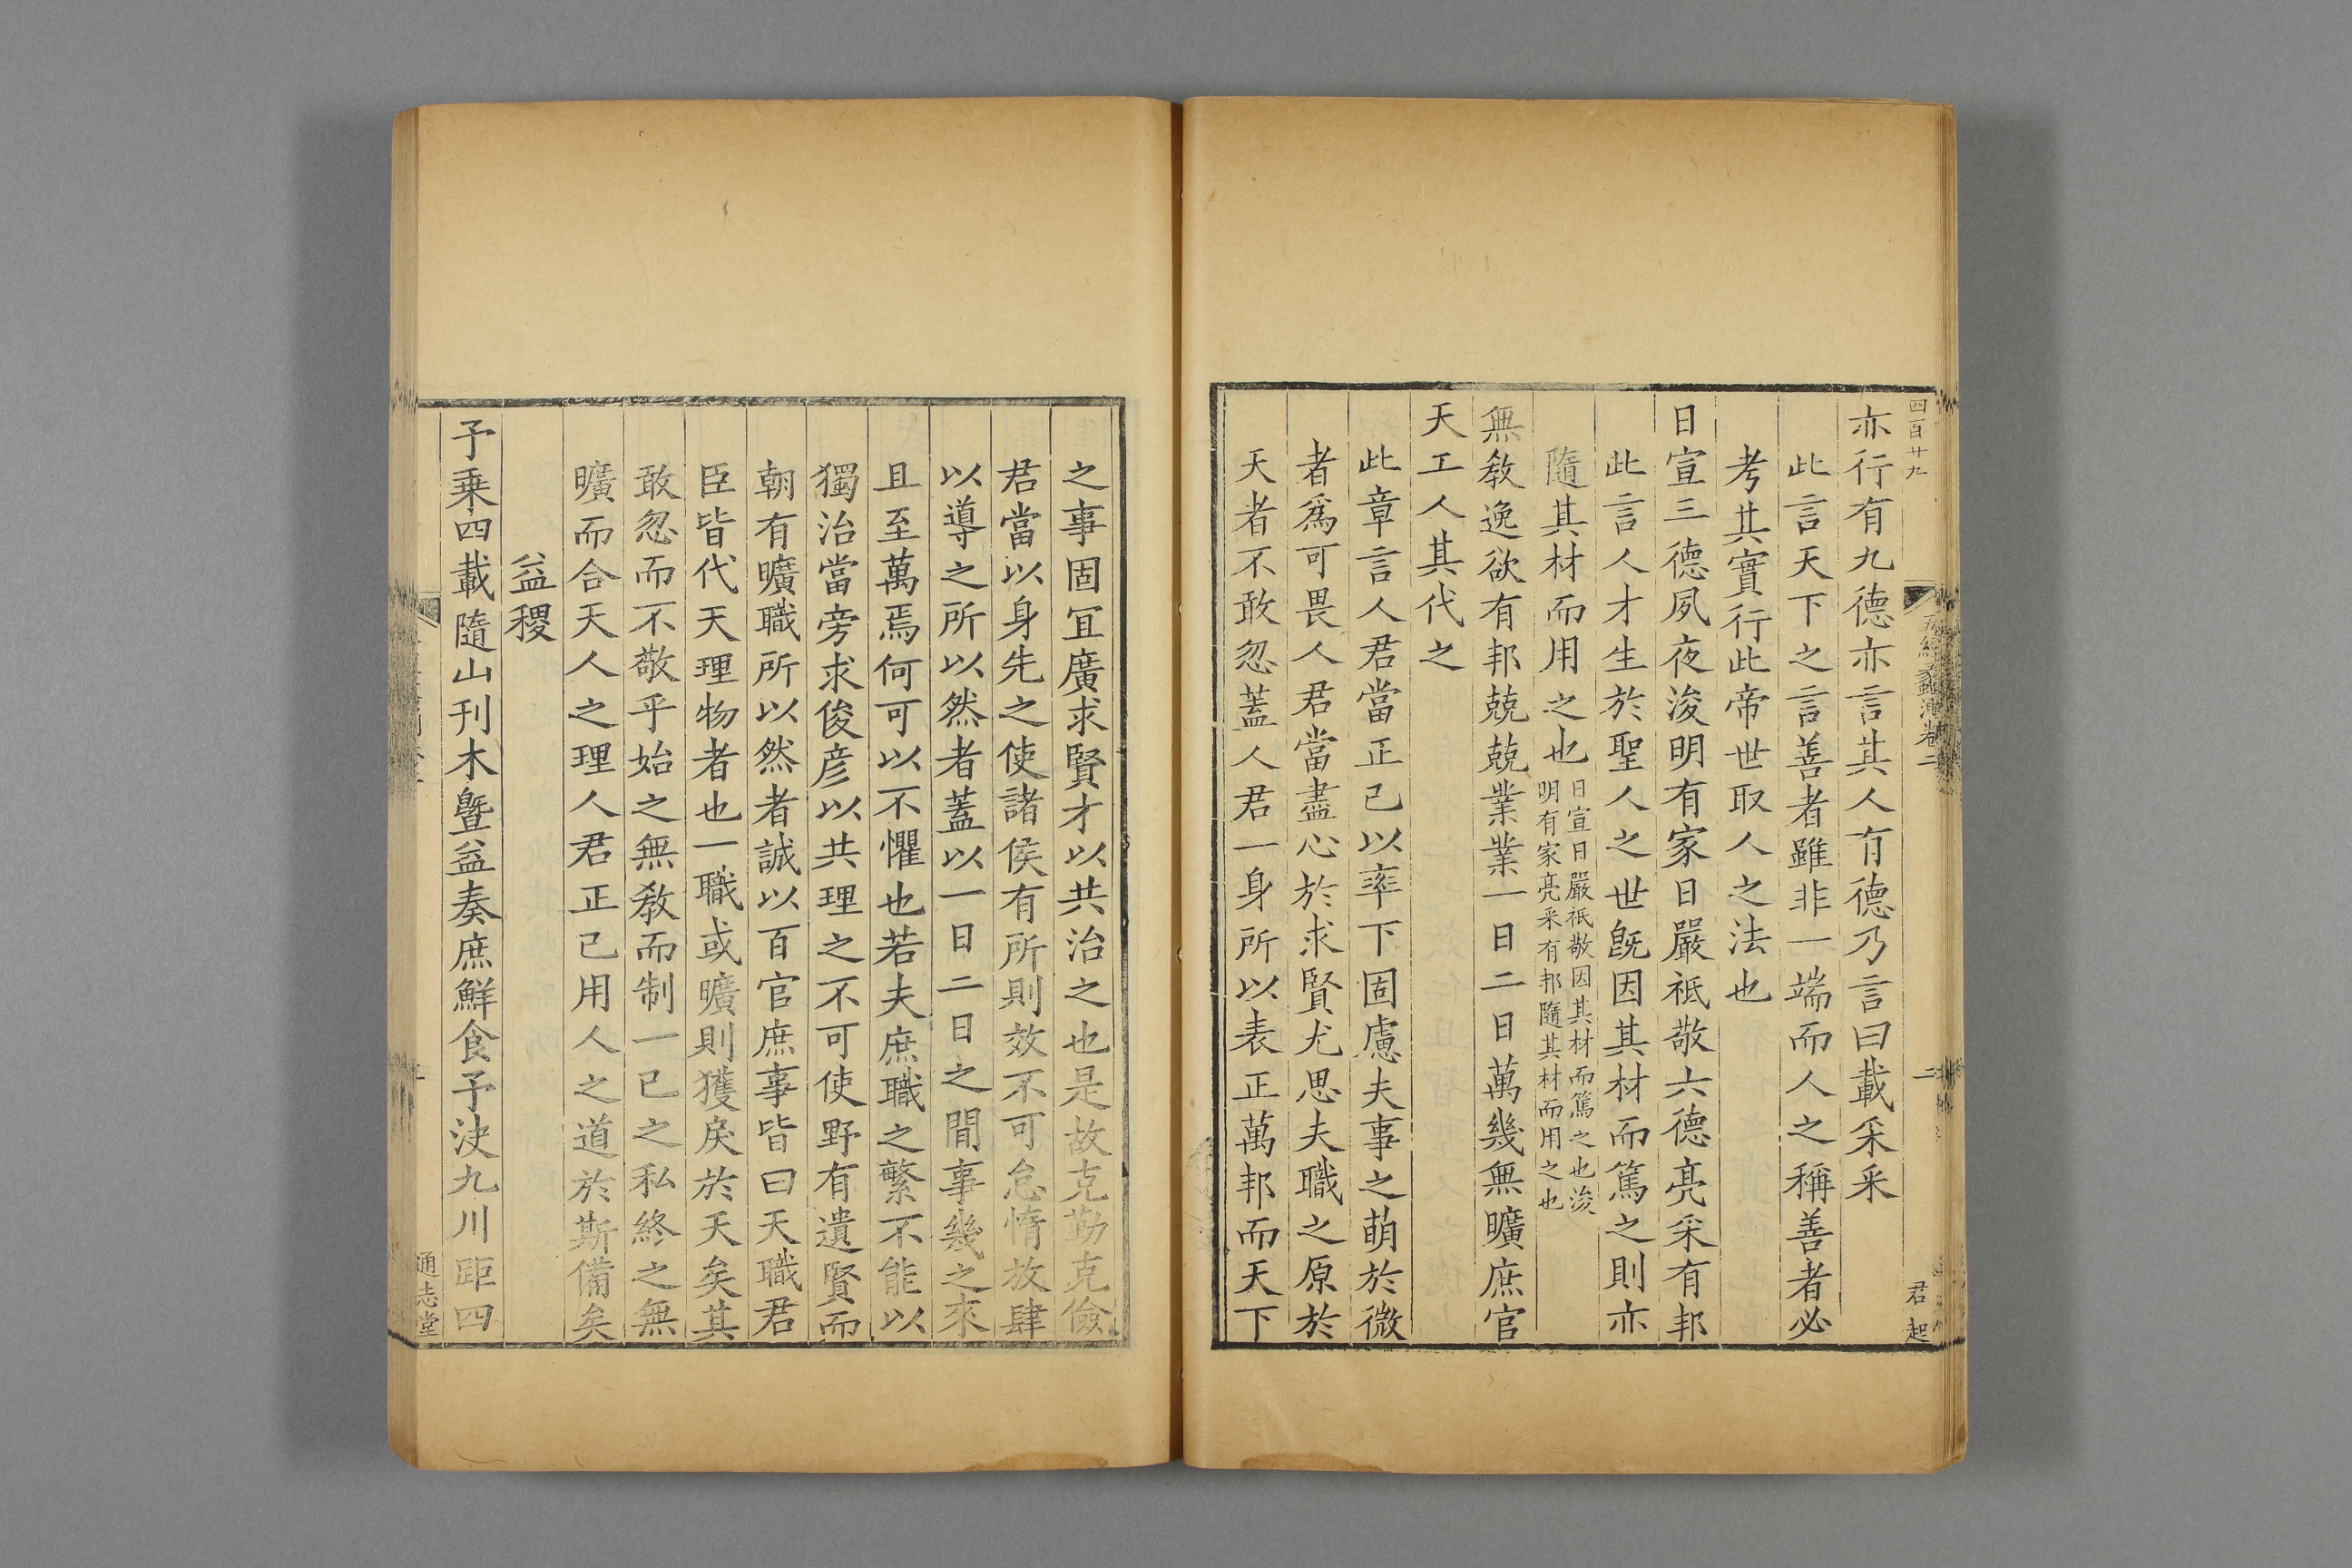 四百廿九
亦行有九德亦言其人有德乃言曰載采采
此言天下之言善者雖非一端而人之稱善者必
考其實行此帝世取人之法也
日宣三德夙夜浚明有家日嚴祗敬六德亮采有邦
此言人才生於聖人之世旣因其材而篤之則亦
隨其材而用之也
日宣日嚴祗敬因其材而篤之也浚
明有家亮采有邦隨其材而用之也
無敎逸欲有邦兢兢業業一日二日萬幾無曠庶官
天工人其代之
此章言人君當正己以率下固慮夫事之萌於微
者爲可畏人君當盡心於求賢尤思夫職之原於
天者不敢忽蓋人君一身所以表正萬邦而天下
君起
之事固宜廣求賢才以共治之也是故克勤克儉
君當以身先之使諸侯有所則效不可怠惰放肆
以導之所以然者蓋以一日二日之間事幾之來
且至萬焉何可以不懼也若夫庶職之繁不能以
獨治當旁求俊彦以共理之不可使野有遺賢而
朝有曠職所以然者誠以百官庶事皆曰天職君
臣皆代天理物者也一職或曠則獲戾於天矣其
敢忽而不敬乎始之無敎而制一己之私終之無
曠而合天人之理人君正己用人之道於斯備矣
益稷
予乗四載隨山刊木曁益奏庶鮮食予決九川距四
通志堂